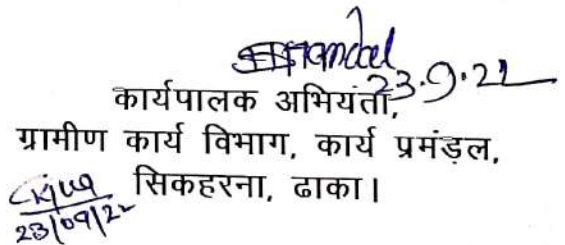 23.9.22
कार्यपालक अभियंता,
ग्रामीण कार्य विभाग, कार्य प्रमंड़ल,
सिकहरना, ढाका।
23/09/22